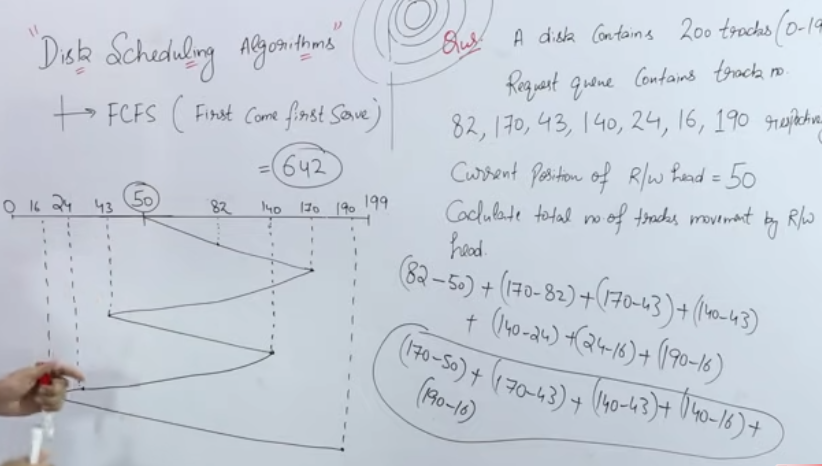 "Disk Scheduling Algorithms"
→ FCFS ( First Come first Serve)
= 642
0 16 24 43 50 82 140 170 190 199
Ques. A disk contains 200 tracks (0-19
Request queue contains track no.
82, 170, 43, 140, 24, 16, 190
Current Position of R/W head = 50
Calculate total no of tracks movement by R/W
head.
(82-50) + (170-82) + (170-43) + (140-43)
+ (140-24) + (24-16) + (190-16)
(170-50) + (170-43) + (140-43) + (140-16) +
(190-16)